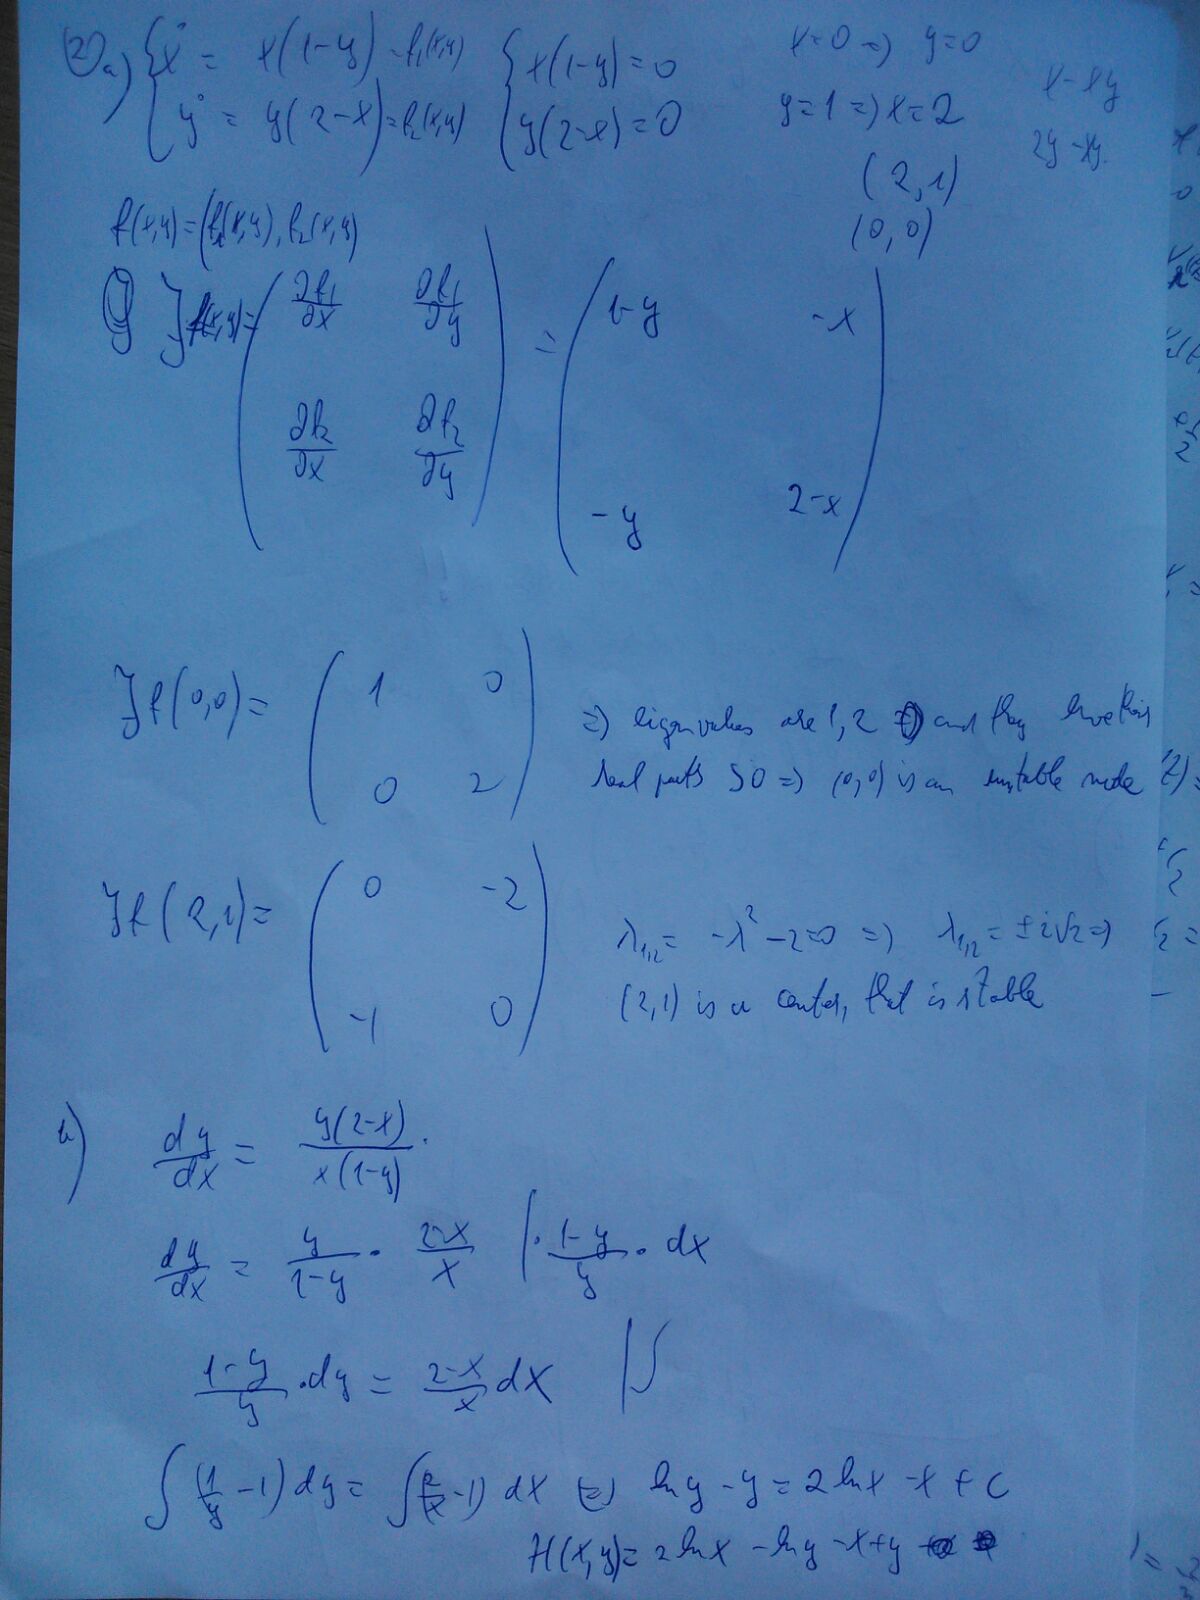 2) a) { ẋ = x(1-y) = f₁(x,y) { x(1-y)=0 x=0 => y=0
ẏ = y(2-x) = f₂(x,y) y(2-x)=0 y=1 => x=2
x-xy
2y-xy
(2,1)
(0,0)
f(x,y) = (f₁(x,y), f₂(x,y)
J f(x,y) = ( ∂f₁/∂x ∂f₁/∂y ) = ( 1-y -x )
( ∂f₂/∂x ∂f₂/∂y ) ( -y 2-x )
Jf(0,0) = ( 1 0 ) => eigenvalues are 1, 2 and they have their
( 0 2 ) real parts >0 => (0,0) is an unstable node
Jf(2,1) = ( 0 -2 ) λ₁,₂ = -λ² -2=0 => λ₁,₂ = ±i√2 =>
( -1 0 ) (2,1) is a center, that is stable
b) dy/dx = y(2-x)/x(1-y) .
dy/dx = y/1-y · 2-x/x | · 1-y/y · dx
1-y/y · dy = 2-x/x dx | ∫
∫(1/y - 1) dy = ∫(2/x - 1) dx <=> ln y - y = 2 ln x - x + c
H(x,y) = 2 ln x - ln y - x + y